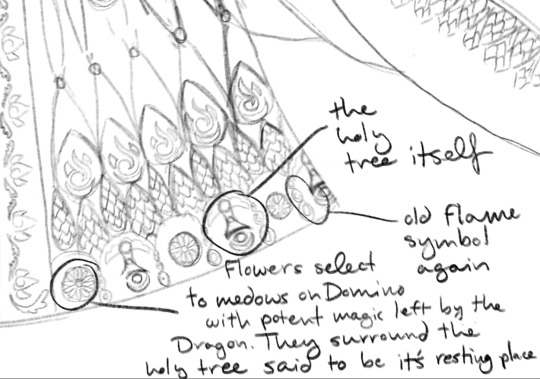 the
holy
tree itself
old flame
symbol
again
Flowers select
to medows on Domino
with potent magic left by the
Dragon. They surround the
holy tree said to be it's resting place